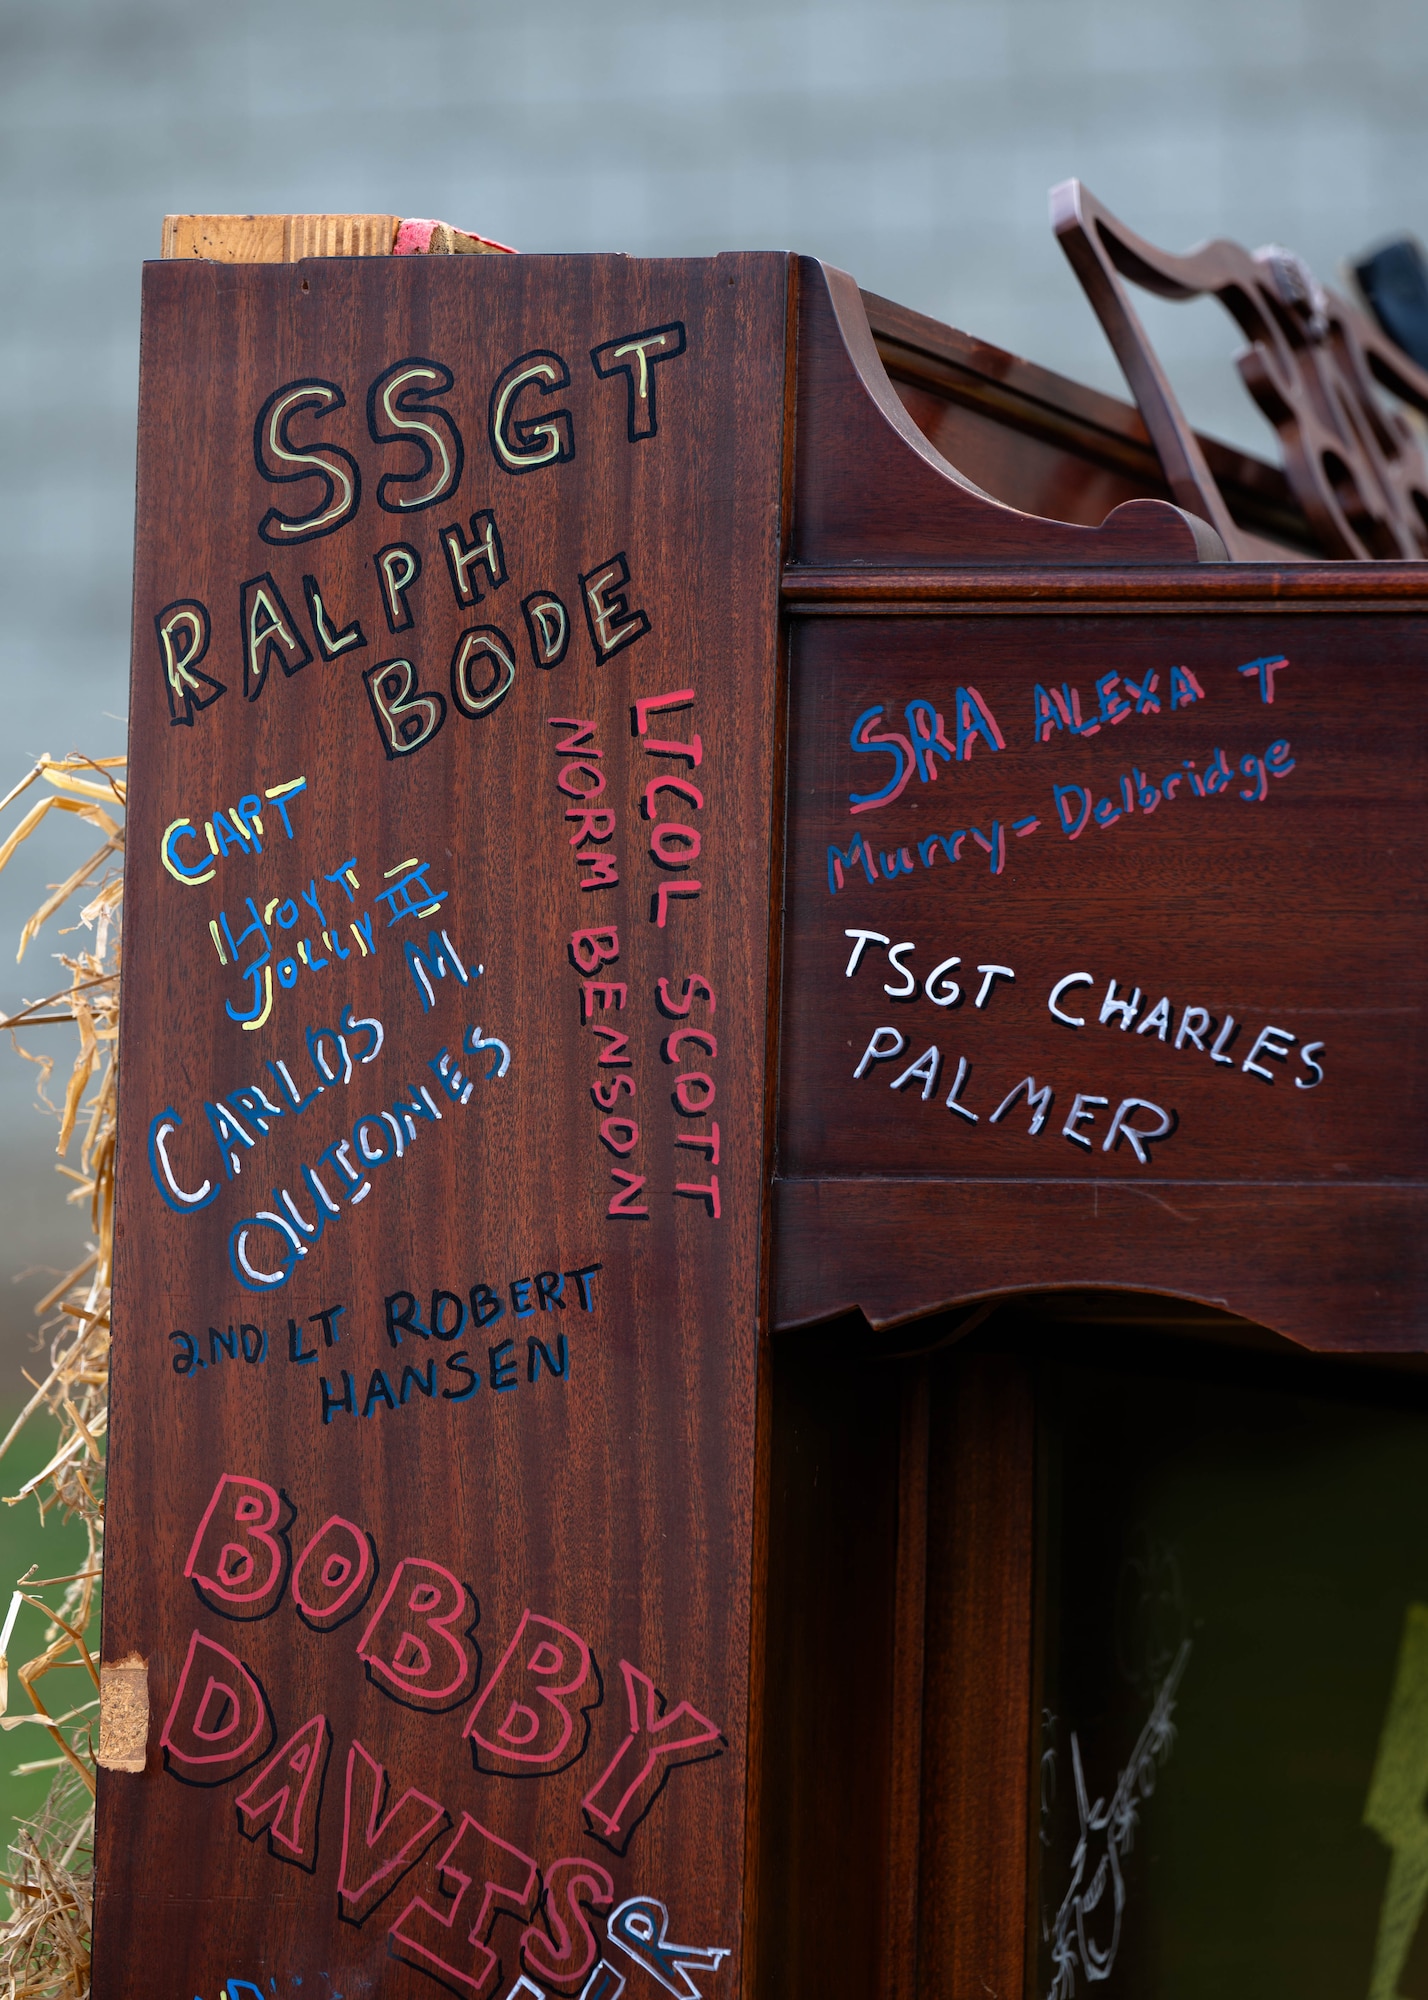 SSGT
RALPH
BODE
LTCOL SCOTT
NORM BENSON
CAPT
HOYT
JOLLY III
CARLOS M.
QUIONES
2ND LT ROBERT
HANSEN
BOBBY
DAVIS
SRA ALEXA T
Murry-Delbridge
TSGT CHARLES
PALMER